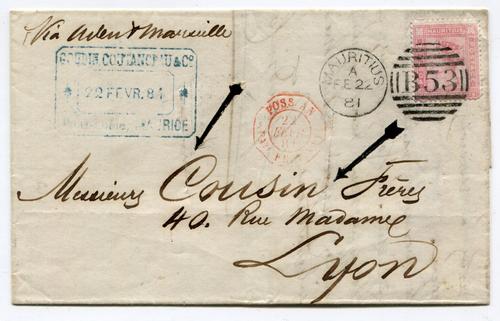 Via Aden & Marseille
& Cº
22 FEVR. 81
MAURICE
POSS. AN
22
MAURITIUS
A
FE 22
81
MAURITIUS
B53
Messieurs Cousin Frères
40. Rue Madame
Lyon